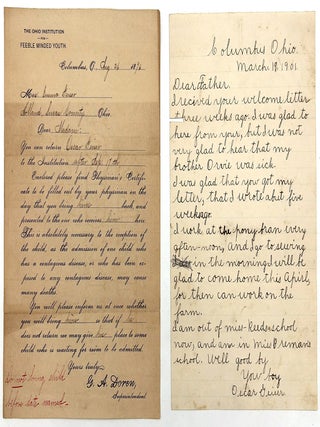 THE OHIO INSTITUTION
FOR
FEEBLE MINDED YOUTH
Columbus, O.
Mrs.
Holland, Lucas County, Ohio.
Dear Madam:
You can return Oscar
to the Institution after Sept 17th
Enclosed please find Physician's Certifi-
cate to be filled out by your physician on the
day that you bring him back, and
presented to the one who receives him here.
This is absolutely necessary to the reception of
the child, as the admission of one child who
has a contagious disease, or who has been ex-
posed to any contagious disease, may cause
many deaths.
You will please inform us at once whether
you will bring him is that if he
does not return we may give his place to some
child who is waiting for room to be admitted.
Yours truly,
G. A. Doren,
Superintendent.
Do not bring child
before date named.
Columbus Ohio.
March 18, 1901.
Dear Father.
I recived your welcome letter
three weeks ago. I was glad to
here from your, but I was not
very glad to hear that my
brother Orvie was sick.
I was glad that you got my
letter, that I wrote abit five
weekago.
I work at the pony barn every
after-mon, and I go to sewing
in the morning I will be
glad to come home this Apirl,
for then can work on the
farm.
I am out of miss Reeds school
now, and am in miss
school. Well good by
You boy
Oscar